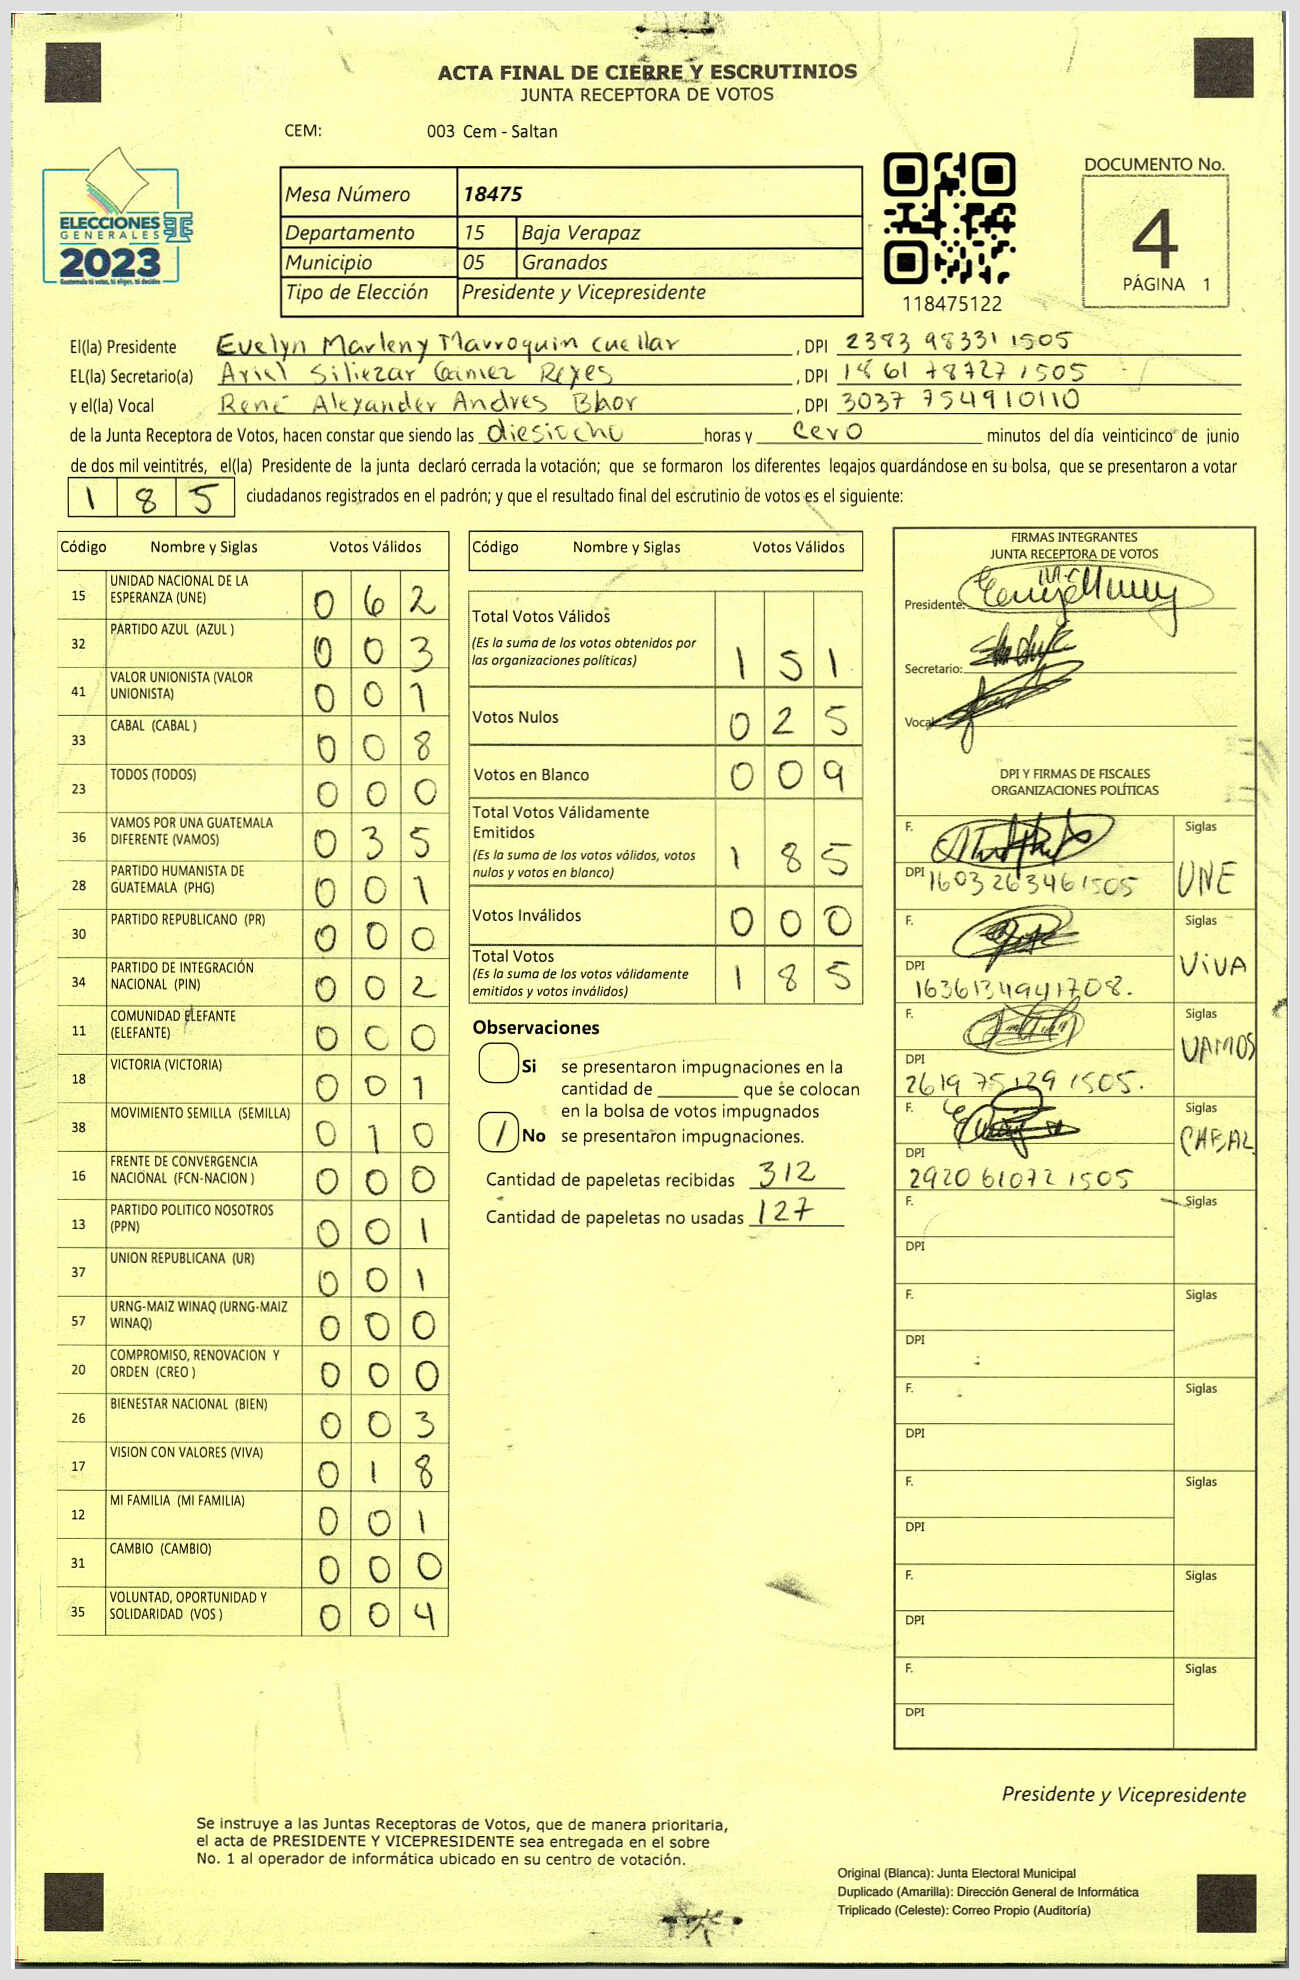 ACTA FINAL DE CIERRE Y ESCRUTINIOS
JUNTA RECEPTORA DE VOTOS
CEM: 003 Cem - Saltan
ELECCIONES
GENERALES
2023
Guatemala tú votas, tú eliges, tú decides
Mesa Número 18475
Departamento 15 Baja Verapaz
Municipio 05 Granados
Tipo de Elección Presidente y Vicepresidente
118475122
DOCUMENTO No.
4
PÁGINA 1
El(la) Presidente Evelyn Marleny Marroquin Cuellar , DPI 2383 98331 1505
EL(la) Secretario(a) Ariel Siliezar Gamez Reyes , DPI 1861 78727 1505
y el(la) Vocal René Alexander Andres Bhor , DPI 3037 754910110
de la Junta Receptora de Votos, hacen constar que siendo las diesiocho horas y cero minutos del día veinticinco de junio
de dos mil veintitrés, el(la) Presidente de la junta declaró cerrada la votación; que se formaron los diferentes legajos guardándose en su bolsa, que se presentaron a votar
1 8 5 ciudadanos registrados en el padrón; y que el resultado final del escrutinio de votos es el siguiente:
Código Nombre y Siglas Votos Válidos
15 UNIDAD NACIONAL DE LA ESPERANZA (UNE) 0 6 2
32 PARTIDO AZUL (AZUL ) 0 0 3
41 VALOR UNIONISTA (VALOR UNIONISTA) 0 0 1
33 CABAL (CABAL ) 0 0 8
23 TODOS (TODOS) 0 0 0
36 VAMOS POR UNA GUATEMALA DIFERENTE (VAMOS) 0 3 5
28 PARTIDO HUMANISTA DE GUATEMALA (PHG) 0 0 1
30 PARTIDO REPUBLICANO (PR) 0 0 0
34 PARTIDO DE INTEGRACIÓN NACIONAL (PIN) 0 0 2
11 COMUNIDAD ELEFANTE (ELEFANTE) 0 0 0
18 VICTORIA (VICTORIA) 0 0 1
38 MOVIMIENTO SEMILLA (SEMILLA) 0 1 0
16 FRENTE DE CONVERGENCIA NACIONAL (FCN-NACION ) 0 0 0
13 PARTIDO POLITICO NOSOTROS (PPN) 0 0 1
37 UNION REPUBLICANA (UR) 0 0 1
57 URNG-MAIZ WINAQ (URNG-MAIZ WINAQ) 0 0 0
20 COMPROMISO, RENOVACION Y ORDEN (CREO ) 0 0 0
26 BIENESTAR NACIONAL (BIEN) 0 0 3
17 VISION CON VALORES (VIVA) 0 1 8
12 MI FAMILIA (MI FAMILIA) 0 0 1
31 CAMBIO (CAMBIO) 0 0 0
35 VOLUNTAD, OPORTUNIDAD Y SOLIDARIDAD (VOS ) 0 0 4
Código Nombre y Siglas Votos Válidos
Total Votos Válidos
(Es la suma de los votos obtenidos por
las organizaciones políticas) 1 5 1
Votos Nulos 0 2 5
Votos en Blanco 0 0 9
Total Votos Válidamente
Emitidos
(Es la suma de los votos válidos, votos
nulos y votos en blanco) 1 8 5
Votos Inválidos 0 0 0
Total Votos
(Es la suma de los votos válidamente
emitidos y votos inválidos) 1 8 5
Observaciones
Si se presentaron impugnaciones en la
cantidad de ________ que se colocan
en la bolsa de votos impugnados
/ No se presentaron impugnaciones.
Cantidad de papeletas recibidas 312
Cantidad de papeletas no usadas 127
FIRMAS INTEGRANTES
JUNTA RECEPTORA DE VOTOS
Presidente:
Secretario:
Vocal
DPI Y FIRMAS DE FISCALES
ORGANIZACIONES POLÍTICAS
F. Siglas
DPI 1603 263461505 UNE
F. Siglas
DPI 1636134941708. VIVA
F. Siglas
DPI 2619 75129 1505. VAMOS
F. Siglas
DPI 2920 61072 1505 CABAL
F. Siglas
DPI
F. Siglas
DPI
F. Siglas
DPI
F. Siglas
DPI
F. Siglas
DPI
F. Siglas
DPI
Presidente y Vicepresidente
Se instruye a las Juntas Receptoras de Votos, que de manera prioritaria,
el acta de PRESIDENTE Y VICEPRESIDENTE sea entregada en el sobre
No. 1 al operador de informática ubicado en su centro de votación.
Original (Blanca): Junta Electoral Municipal
Duplicado (Amarilla): Dirección General de Informática
Triplicado (Celeste): Correo Propio (Auditoría)